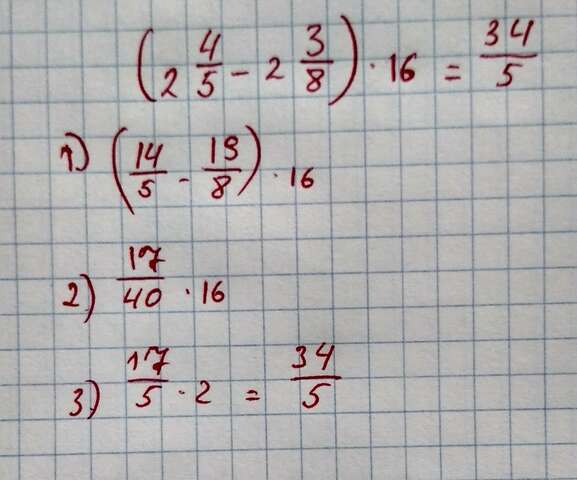 (2 4/5 - 2 3/8) · 16 = 34/5
1) (14/5 - 19/8) · 16
2) 17/40 · 16
3) 17/5 · 2 = 34/5